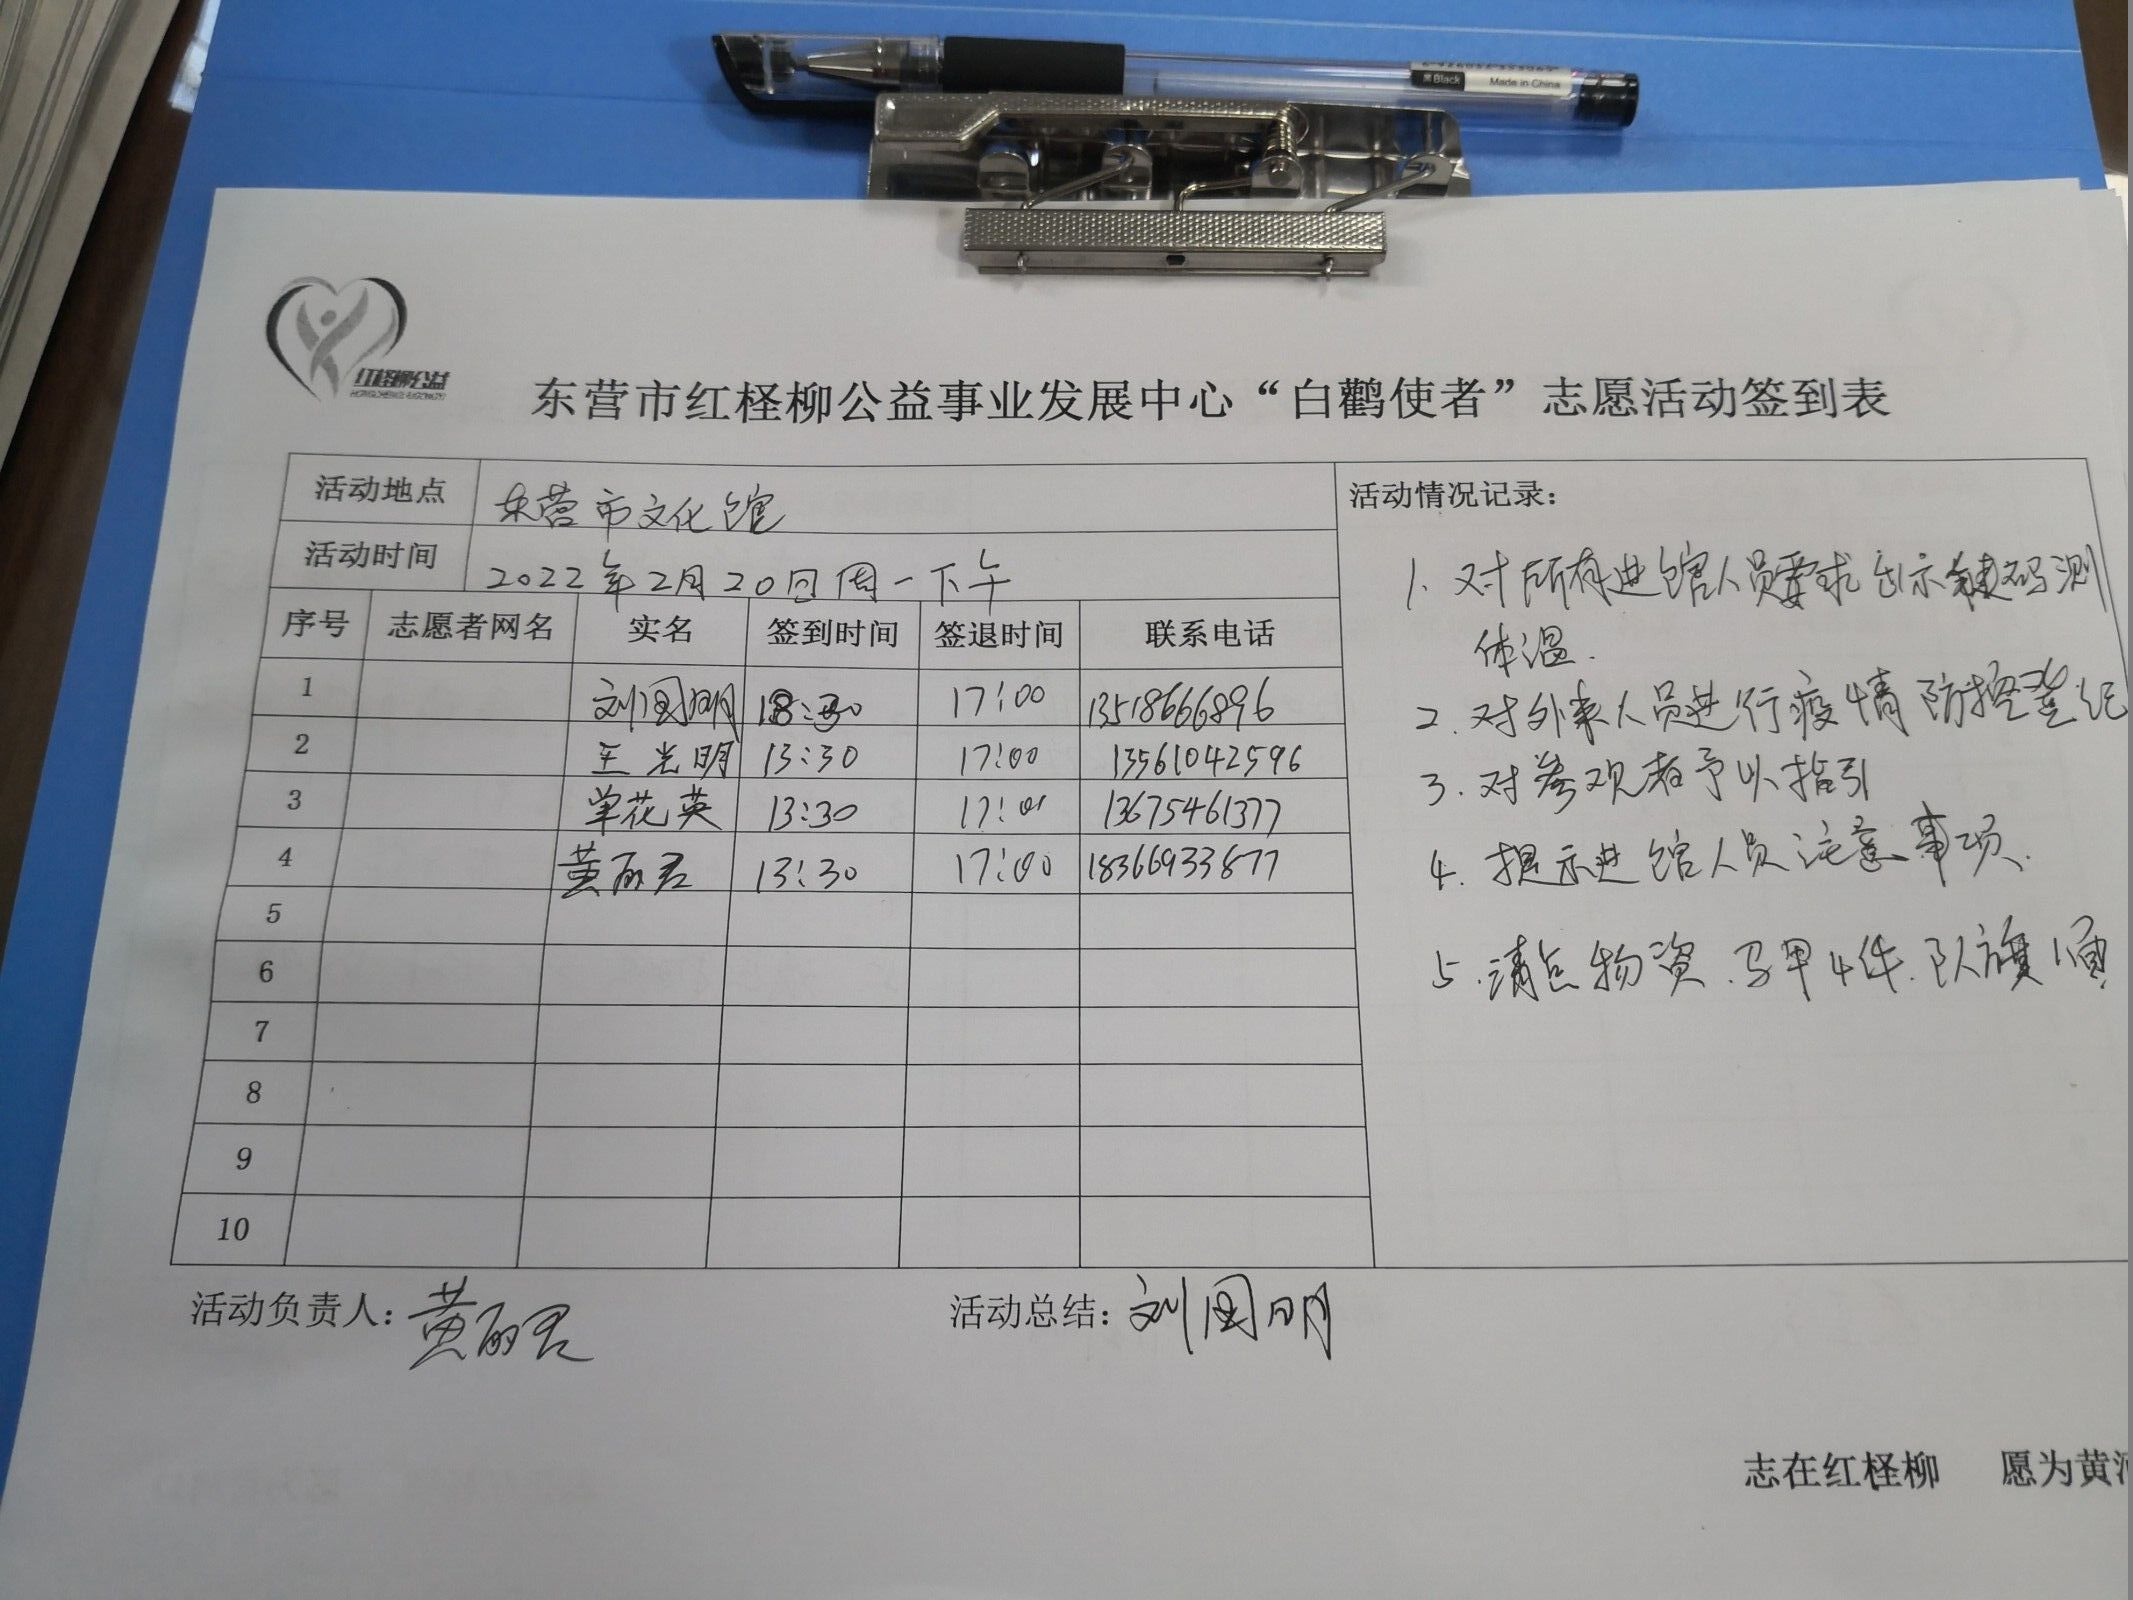 黑Black
Made in China
红柽柳公益
东营市红柽柳公益事业发展中心“白鹳使者”志愿活动签到表
活动地点 东营市文化馆
活动时间 2022年2月20日周一下午
序号 志愿者网名 实名 签到时间 签退时间 联系电话
1 刘国明 13:30 17:00 13518666896
2 王光明 13:30 17:00 13561042596
3 单花英 13:30 17:01 13675461377
4 黄丽君 13:30 17:00 18366933877
5
6
7
8
9
10
活动情况记录：
1. 对所有进馆人员要求出示健码测
体温.
2. 对外来人员进行疫情防控登记
3. 对参观者予以指引
4. 提示进馆人员注意事项.
5. 清点物资.马甲4件.队旗1面
活动负责人：黄丽君 活动总结：刘国明
志在红柽柳 愿为黄河